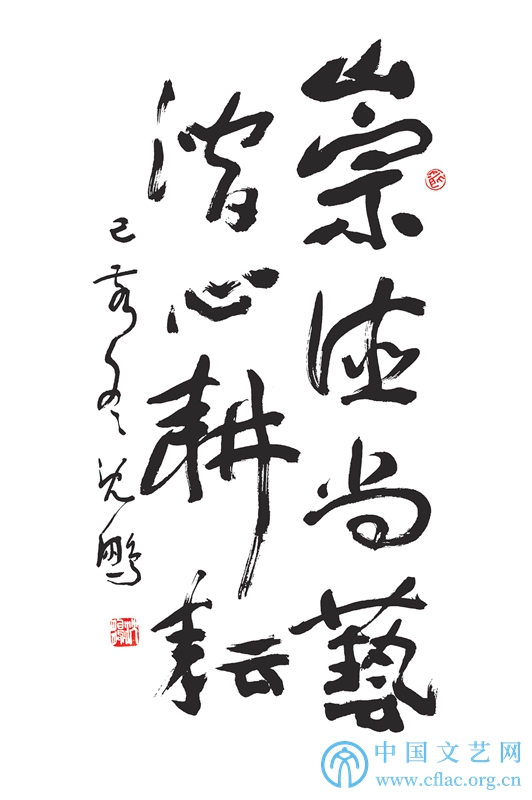 崇德尚藝
潜心耕耘
己亥冬 沈鵬
中国文艺网
www.cflac.org.cn